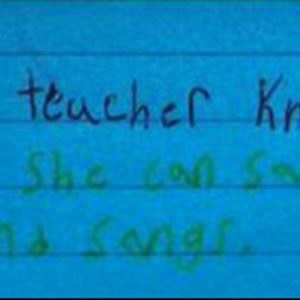 teacher Kn
She can sa
nd songs.